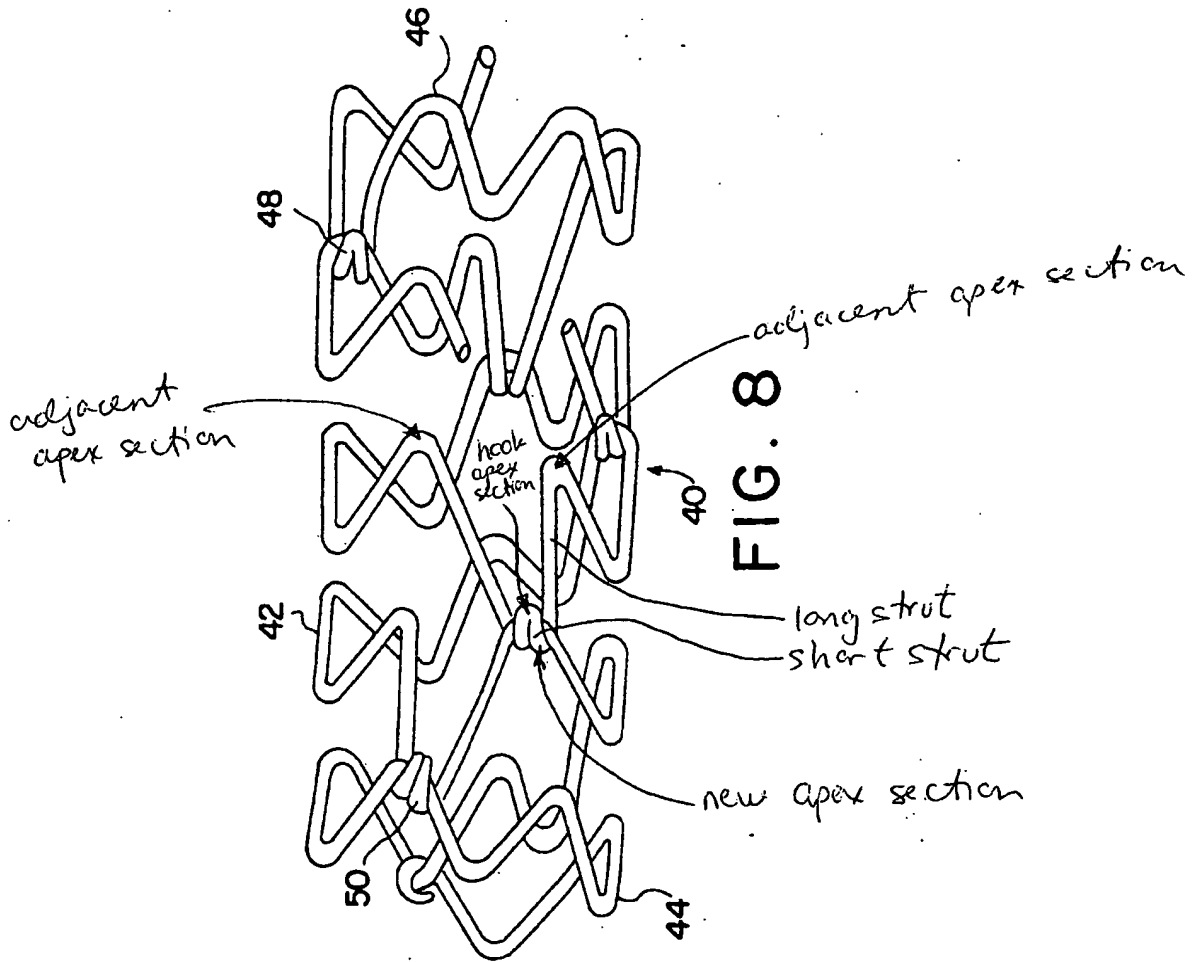 46
48
adjacent apex section
adjacent
apex section
hook
apex
section
40
FIG. 8
42
long strut
short strut
new apex section
50
44